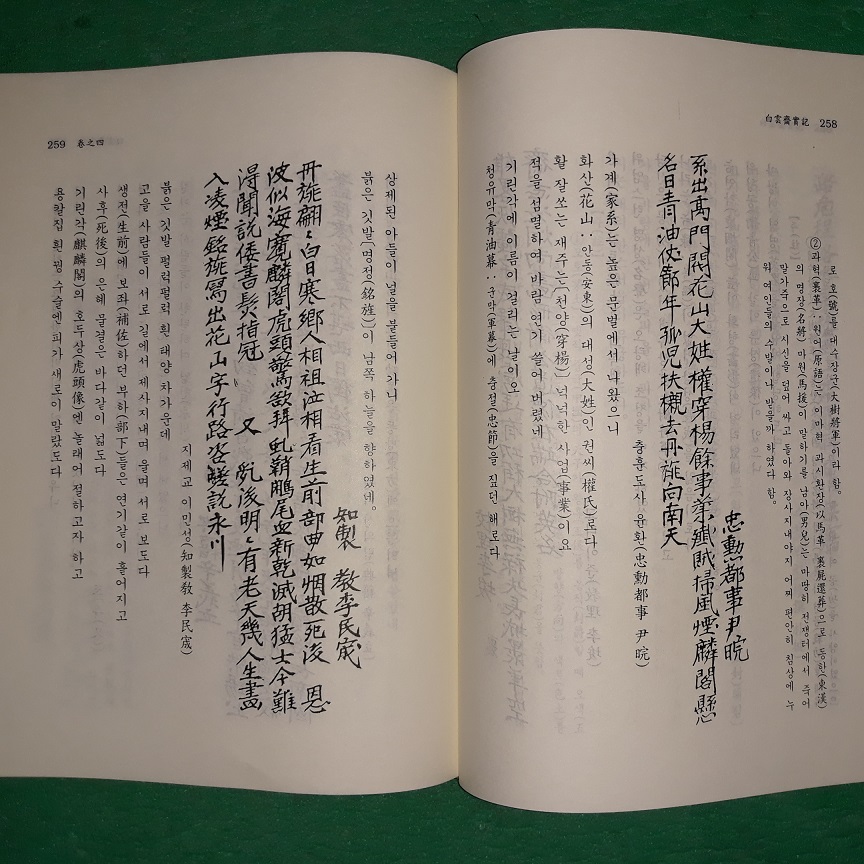 白雲齋實記 258
로 호(號)를 대수장군(大樹將軍)이라 함.
②과혁(裹革)∶원어(原語)는 이마혁 과시환장(以馬革 裹屍還葬)으로 동한(東漢)
의 명장(名將) 마원(馬援)이 말하기를 남아(男兒)는 마땅히 전쟁터에서 죽어
말가죽으로 시신을 덮어 싸고 돌아와 장사지내야지 어찌 편안히 침상에 누
워 여인들의 수발이나 받을까 하였다 함.
忠勳都事 尹晥
系出高門開花山大姓權穿楊餘事業殲賊掃風煙麟閣懸
名日靑油仗節年孤兒扶櫬去丹旐向南天
충훈도사 윤환(忠勳都事 尹晥)
가계(家系)는 높은 문벌에서 나왔으니
화산(花山∶안동(安東)의 대성(大姓)인 권씨(權氏)로다
활 잘쏘는 재주는(천양(穿楊) 넉넉한 사업(事業)이요
적을 섬멸하여 바람 연기 쓸어 버렸네
기린각에 이름이 걸리는 날이오
청유막(靑油幕∶군막(軍幕)에 충절(忠節)을 짚던 해로다
259 卷之四
상제된 아들이 널을 붙들어 가니
붉은 깃발(명정(銘旌))이 남쪽 하늘을 향하였네.
知製 敎李民宬
丹旐翩〻白日寒鄕人相祖泣相看生前部曲如烟散死後 恩
波似海寬麟閣虎頭驚欲拜虬鞘鵰尾血新乾滅胡猛士今難
得聞說倭書髮指冠 又 死後明〻有老天幾人生畵
入凌煙銘旌寫出花山字行路咨嗟說永川
지제교 이민성(知製敎 李民宬)
붉은 깃발 펄럭펄럭 흰 태양 차가운데
고을 사람들이 서로 길에서 제사지내며 울며 서로 보도다
생전(生前)에 보좌(補佐)하던 부하(部下)들은 연기같이 흩어지고
사후(死後)의 은혜 물결은 바다같이 넓도다
기린각(麒麟閣)의 호두상(虎頭像)엔 놀래어 절하고자 하고
용칼집 흰 꿩 수술엔 피가 새로이 말랐도다